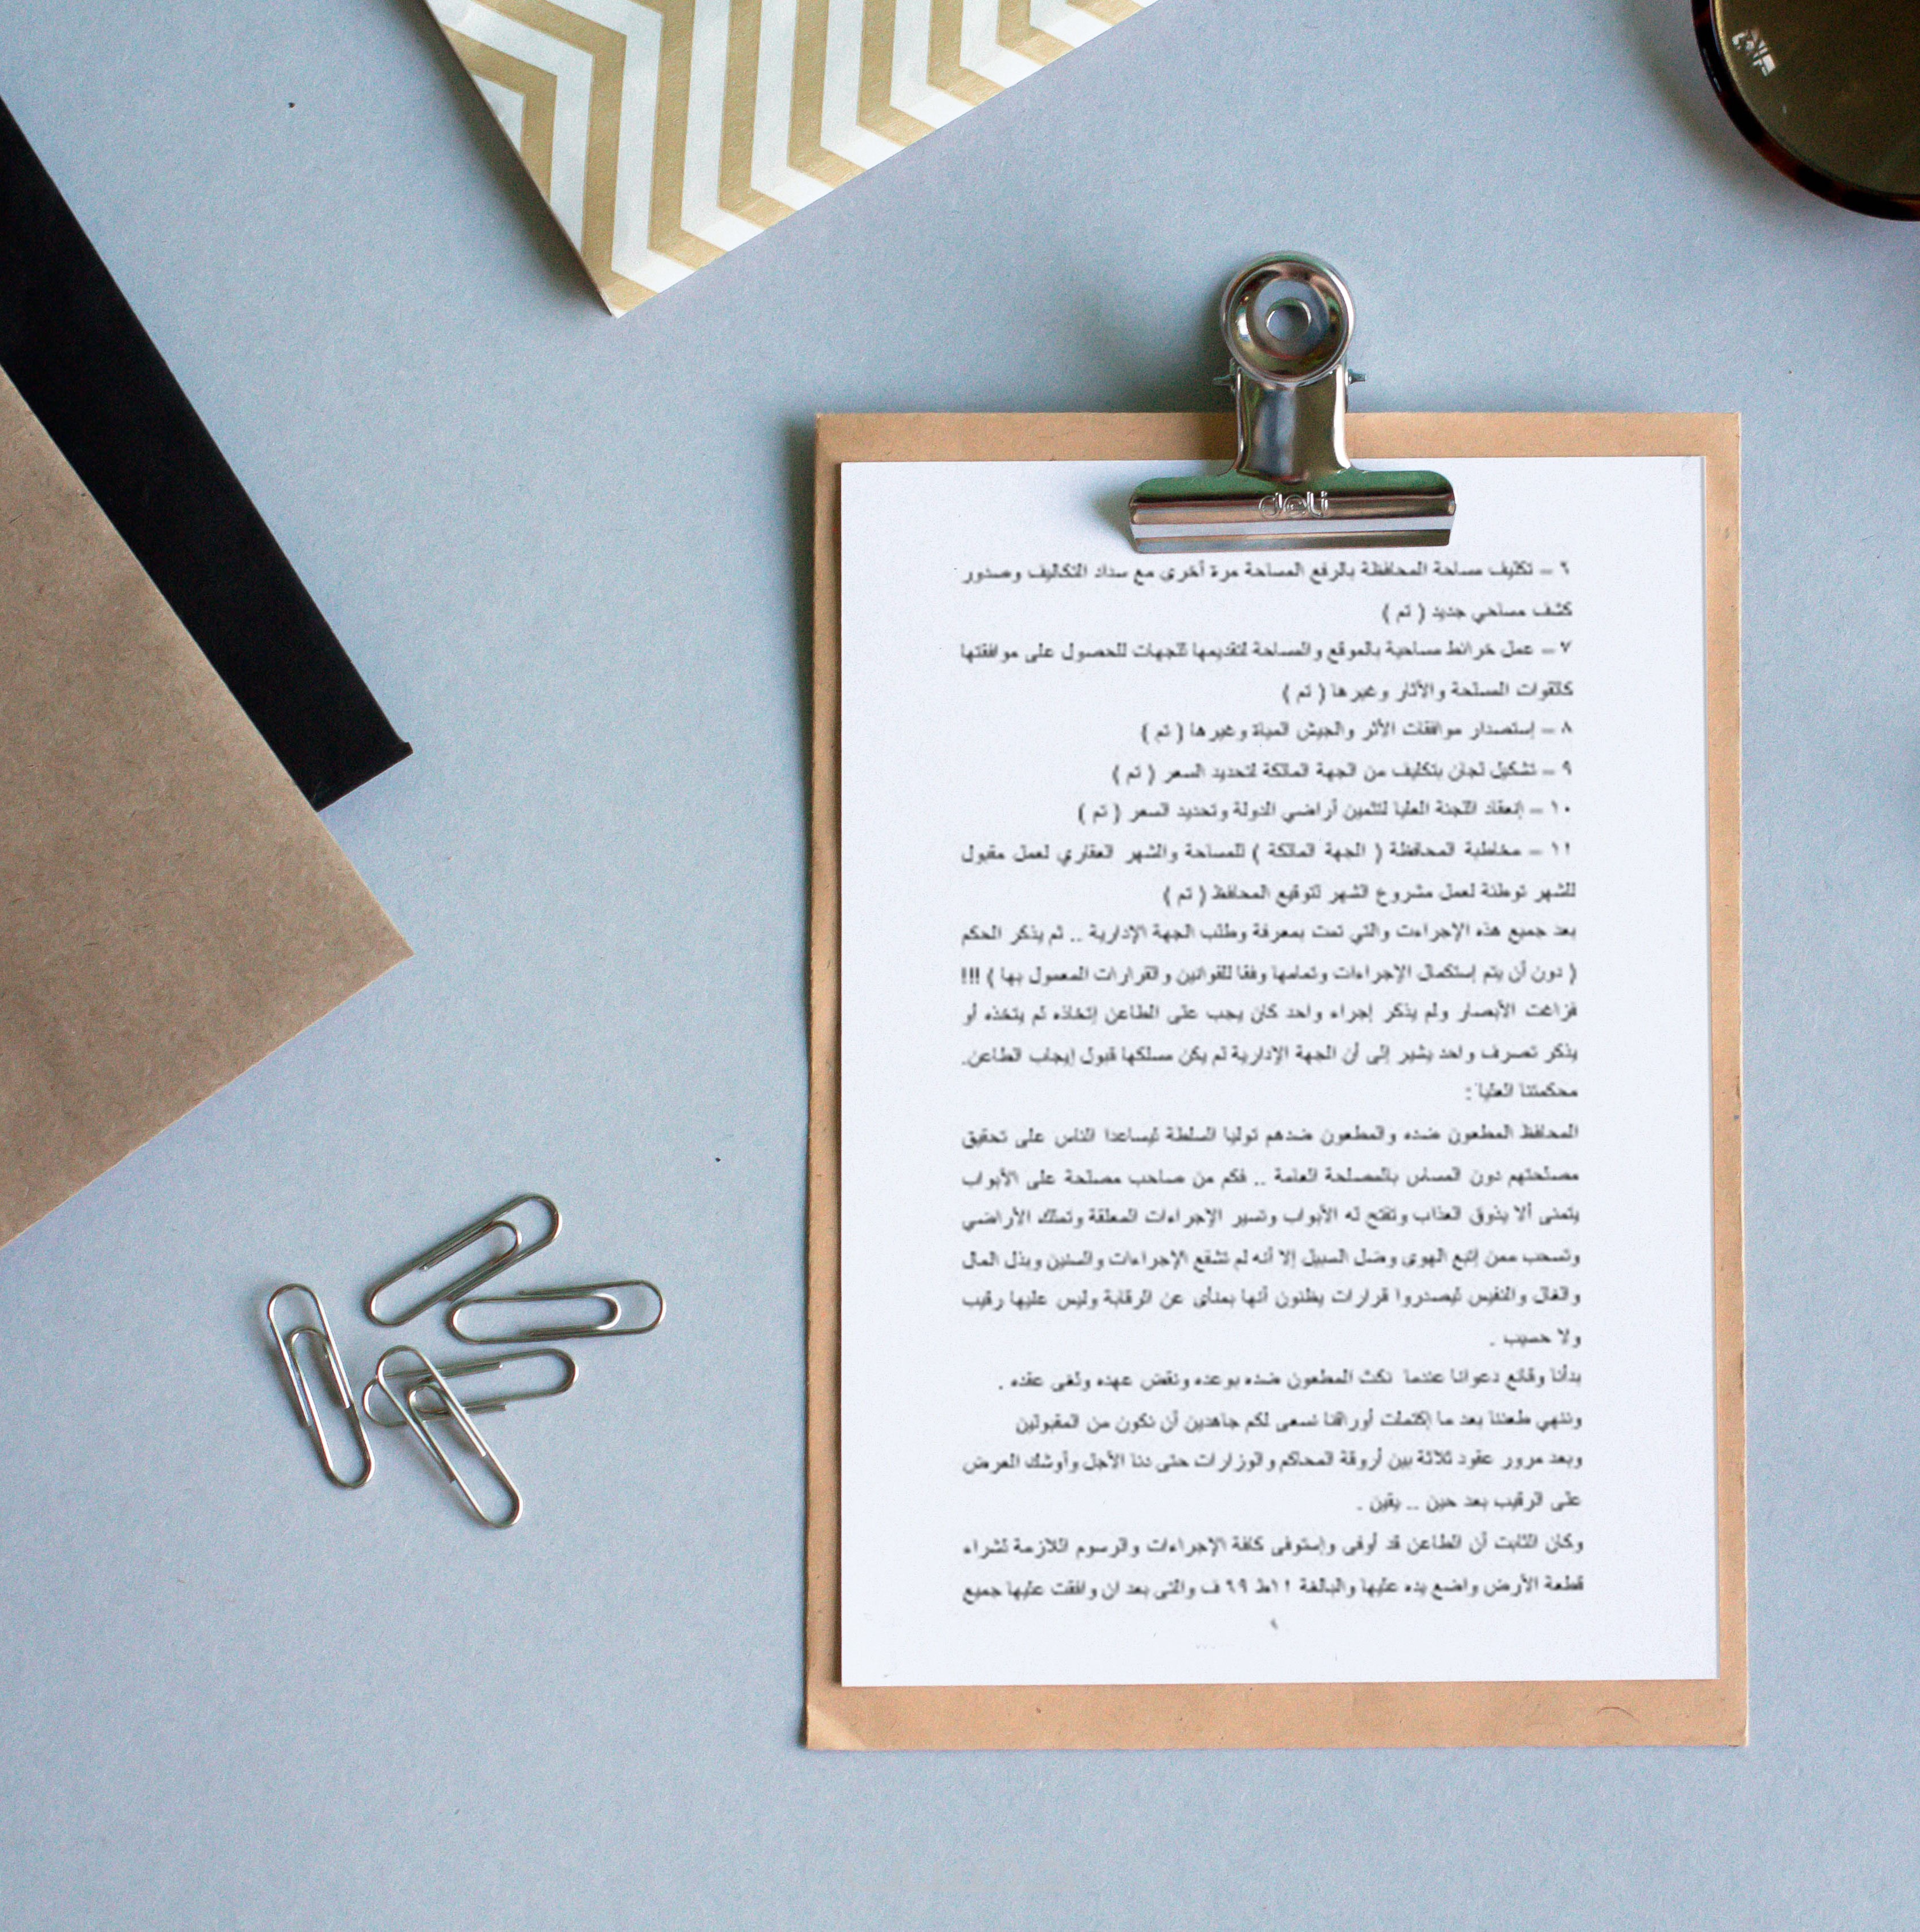 deli
٦ – تكليف مساحة المحافظة بالرفع المساحة مرة أخرى مع سداد التكاليف وصدور
كشف مساحي جديد ( تم )
٧ – عمل خرائط مساحية بالموقع والمساحة لتقديمها للجهات للحصول على موافقتها
كالقوات المسلحة والأثار وغيرها ( تم )
٨ – إستصدار موافقات الأثر والجيش المياة وغيرها ( تم )
٩ – تشكيل لجان بتكليف من الجهة المالكة لتحديد السعر ( تم )
١٠ – إنعقاد اللجنة العليا لتثمين أراضي الدولة وتحديد السعر ( تم )
١١ – مخاطبة المحافظة ( الجهة المالكة ) للمساحة والشهر العقاري لعمل مقبول
للشهر توطئة لعمل مشروع الشهر لتوقيع المحافظ ( تم )
بعد جميع هذه الإجراءت والتي تمت بمعرفة وطلب الجهة الإدارية .. لم يذكر الحكم
( دون أن يتم إستكمال الإجراءات وتمامها وفقا للقوانين والقرارات المعمول بها ) !!!
فزاغت الأبصار ولم يذكر إجراء واحد كان يجب على الطاعن إتخاذه لم يتخذه أو
يذكر تصرف واحد يشير إلى أن الجهة الإدارية لم يكن مسلكها قبول إيجاب الطاعن.
محكمتنا العليا :
المحافظ المطعون ضده والمطعون ضدهم توليا السلطة ليساعدا الناس على تحقيق
مصلحتهم دون المساس بالمصلحة العامة .. فكم من صاحب مصلحة على الأبواب
يتمنى ألا يذوق العذاب وتفتح له الأبواب وتسير الإجراءات المعلقة وتملك الأراضي
وتسحب ممن إتبع الهوى وضل السبيل إلا أنه لم تشفع الإجراءات والسنين وبذل المال
والغال والنفيس ليصدروا قرارات يظنون أنها بمنأى عن الرقابة وليس عليها رقيب
ولا حسيب .
بدأنا وقائع دعوانا عندما نكث المطعون ضده بوعده ونقض عهده ولغى عقده .
وننهي طعننا بعد ما إكتملت أوراقنا نسعى لكم جاهدين أن نكون من المقبولين
وبعد مرور عقود ثلاثة بين أروقة المحاكم والوزارات حتى دنا الأجل وأوشك العرض
على الرقيب بعد حين .. يقين .
وكان الثابت أن الطاعن قد أوفى وإستوفى كافة الإجراءات والرسوم اللازمة لشراء
قطعة الأرض واضع يده عليها والبالغة ١١ط ٦٩ ف والتى بعد ان وافقت عليها جميع
٩